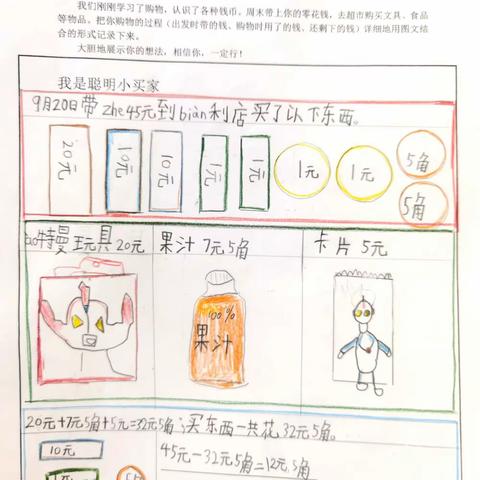 我们刚刚学习了购物，认识了各种钱币。周末带上你的零花钱，去超市购买文具、食品
等物品。把你购物的过程（出发时带的钱、购物时用了的钱、还剩下的钱）详细地用图文结
合的形式记录下来。
大胆地展示你的想法，相信你，一定行！
我是聪明小买家
9月20日带zhe45元到biàn利店买了以下东西。
20元 10元 10元 1元 1元 1元 1元 5角
5角
特曼玩具20元 果汁 7元5角 卡片 5元
100%
果汁
20元+7元5角+5元=32元5角 买东西一共花32元5角。
10元 45元-32元5角=12元5角